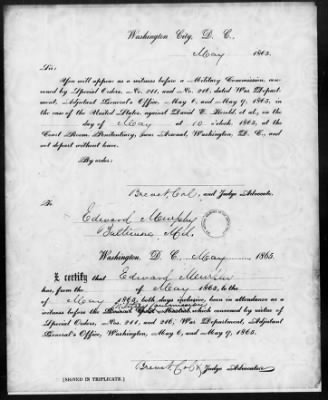 Washington City, D. C.
May 1865.
Sir:
You will appear as a witness before a Military Commission convened by Special Orders, No. 211, and No. 216, dated War Department, Adjutant General's Office, May 6, and May 9, 1865, in
the case of the United States, against David E. Herold, et al., on the
day of May at 10 o'clock, 1865, at the
Court Room, Penitentiary, Washington, D. C., and
not depart without leave.
By order:
Brevet Col. and Judge Advocate.
To
Edward Murphy
Baltimore Md.
Washington, D. C., May 1865.
I certify that Edward Murphy
has, from the of May 1865, to the
of May 1865, both days inclusive, been in attendance as a
witness before the which convened by virtue of
Special Orders, Nos. 211, and 216, War Department, Adjutant
General's Office, Washington, May 6, and May 9, 1865.
Brevet Col & Judge Advocate
[SIGNED IN TRIPLICATE.]